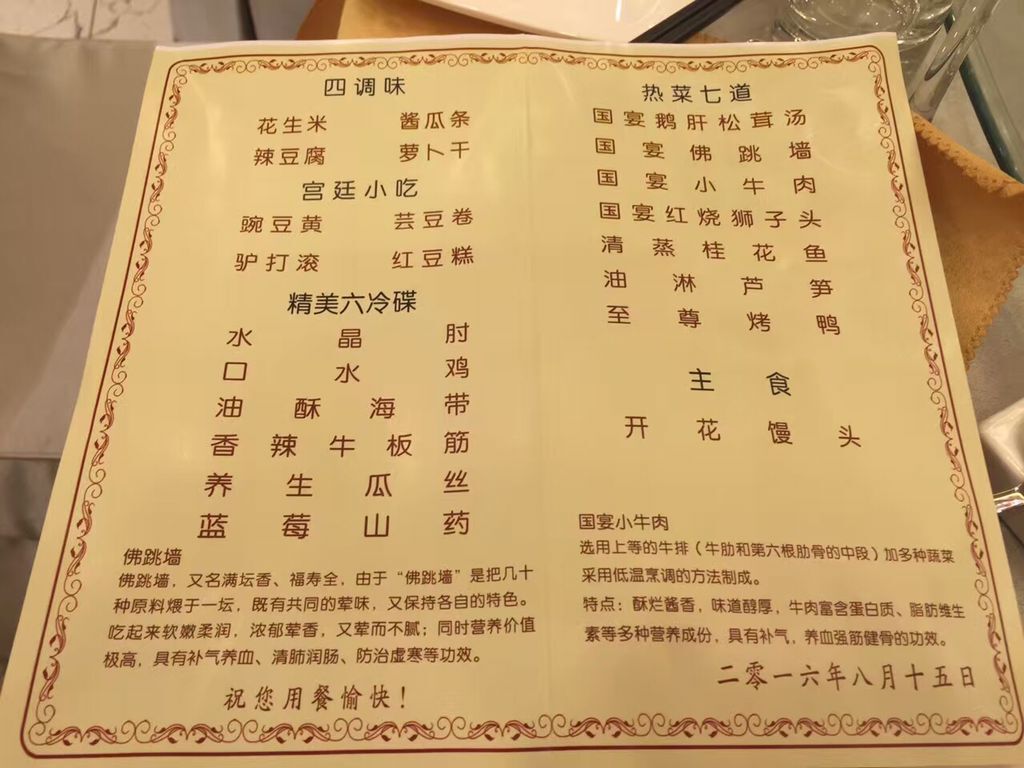 四调味
花生米 酱瓜条
辣豆腐 萝卜干
宫廷小吃
豌豆黄 芸豆卷
驴打滚 红豆糕
精美六冷碟
水晶肘
口水鸡
油酥海带
香辣牛板筋
养生瓜丝
蓝莓山药
佛跳墙
佛跳墙，又名满坛香、福寿全，由于“佛跳墙”是把几十
种原料煨于一坛，既有共同的荤味，又保持各自的特色。
吃起来软嫩柔润，浓郁荤香，又荤而不腻；同时营养价值
极高，具有补气养血、清肺润肠、防治虚寒等功效。
祝您用餐愉快！
热菜七道
国宴鹅肝松茸汤
国宴佛跳墙
国宴小牛肉
国宴红烧狮子头
清蒸桂花鱼
油淋芦笋
至尊烤鸭
主食
开花馒头
国宴小牛肉
选用上等的牛排（牛肋和第六根肋骨的中段）加多种蔬菜
采用低温烹调的方法制成。
特点：酥烂酱香，味道醇厚，牛肉富含蛋白质、脂肪维生
素等多种营养成份，具有补气，养血强筋健骨的功效。
二零一六年八月十五日